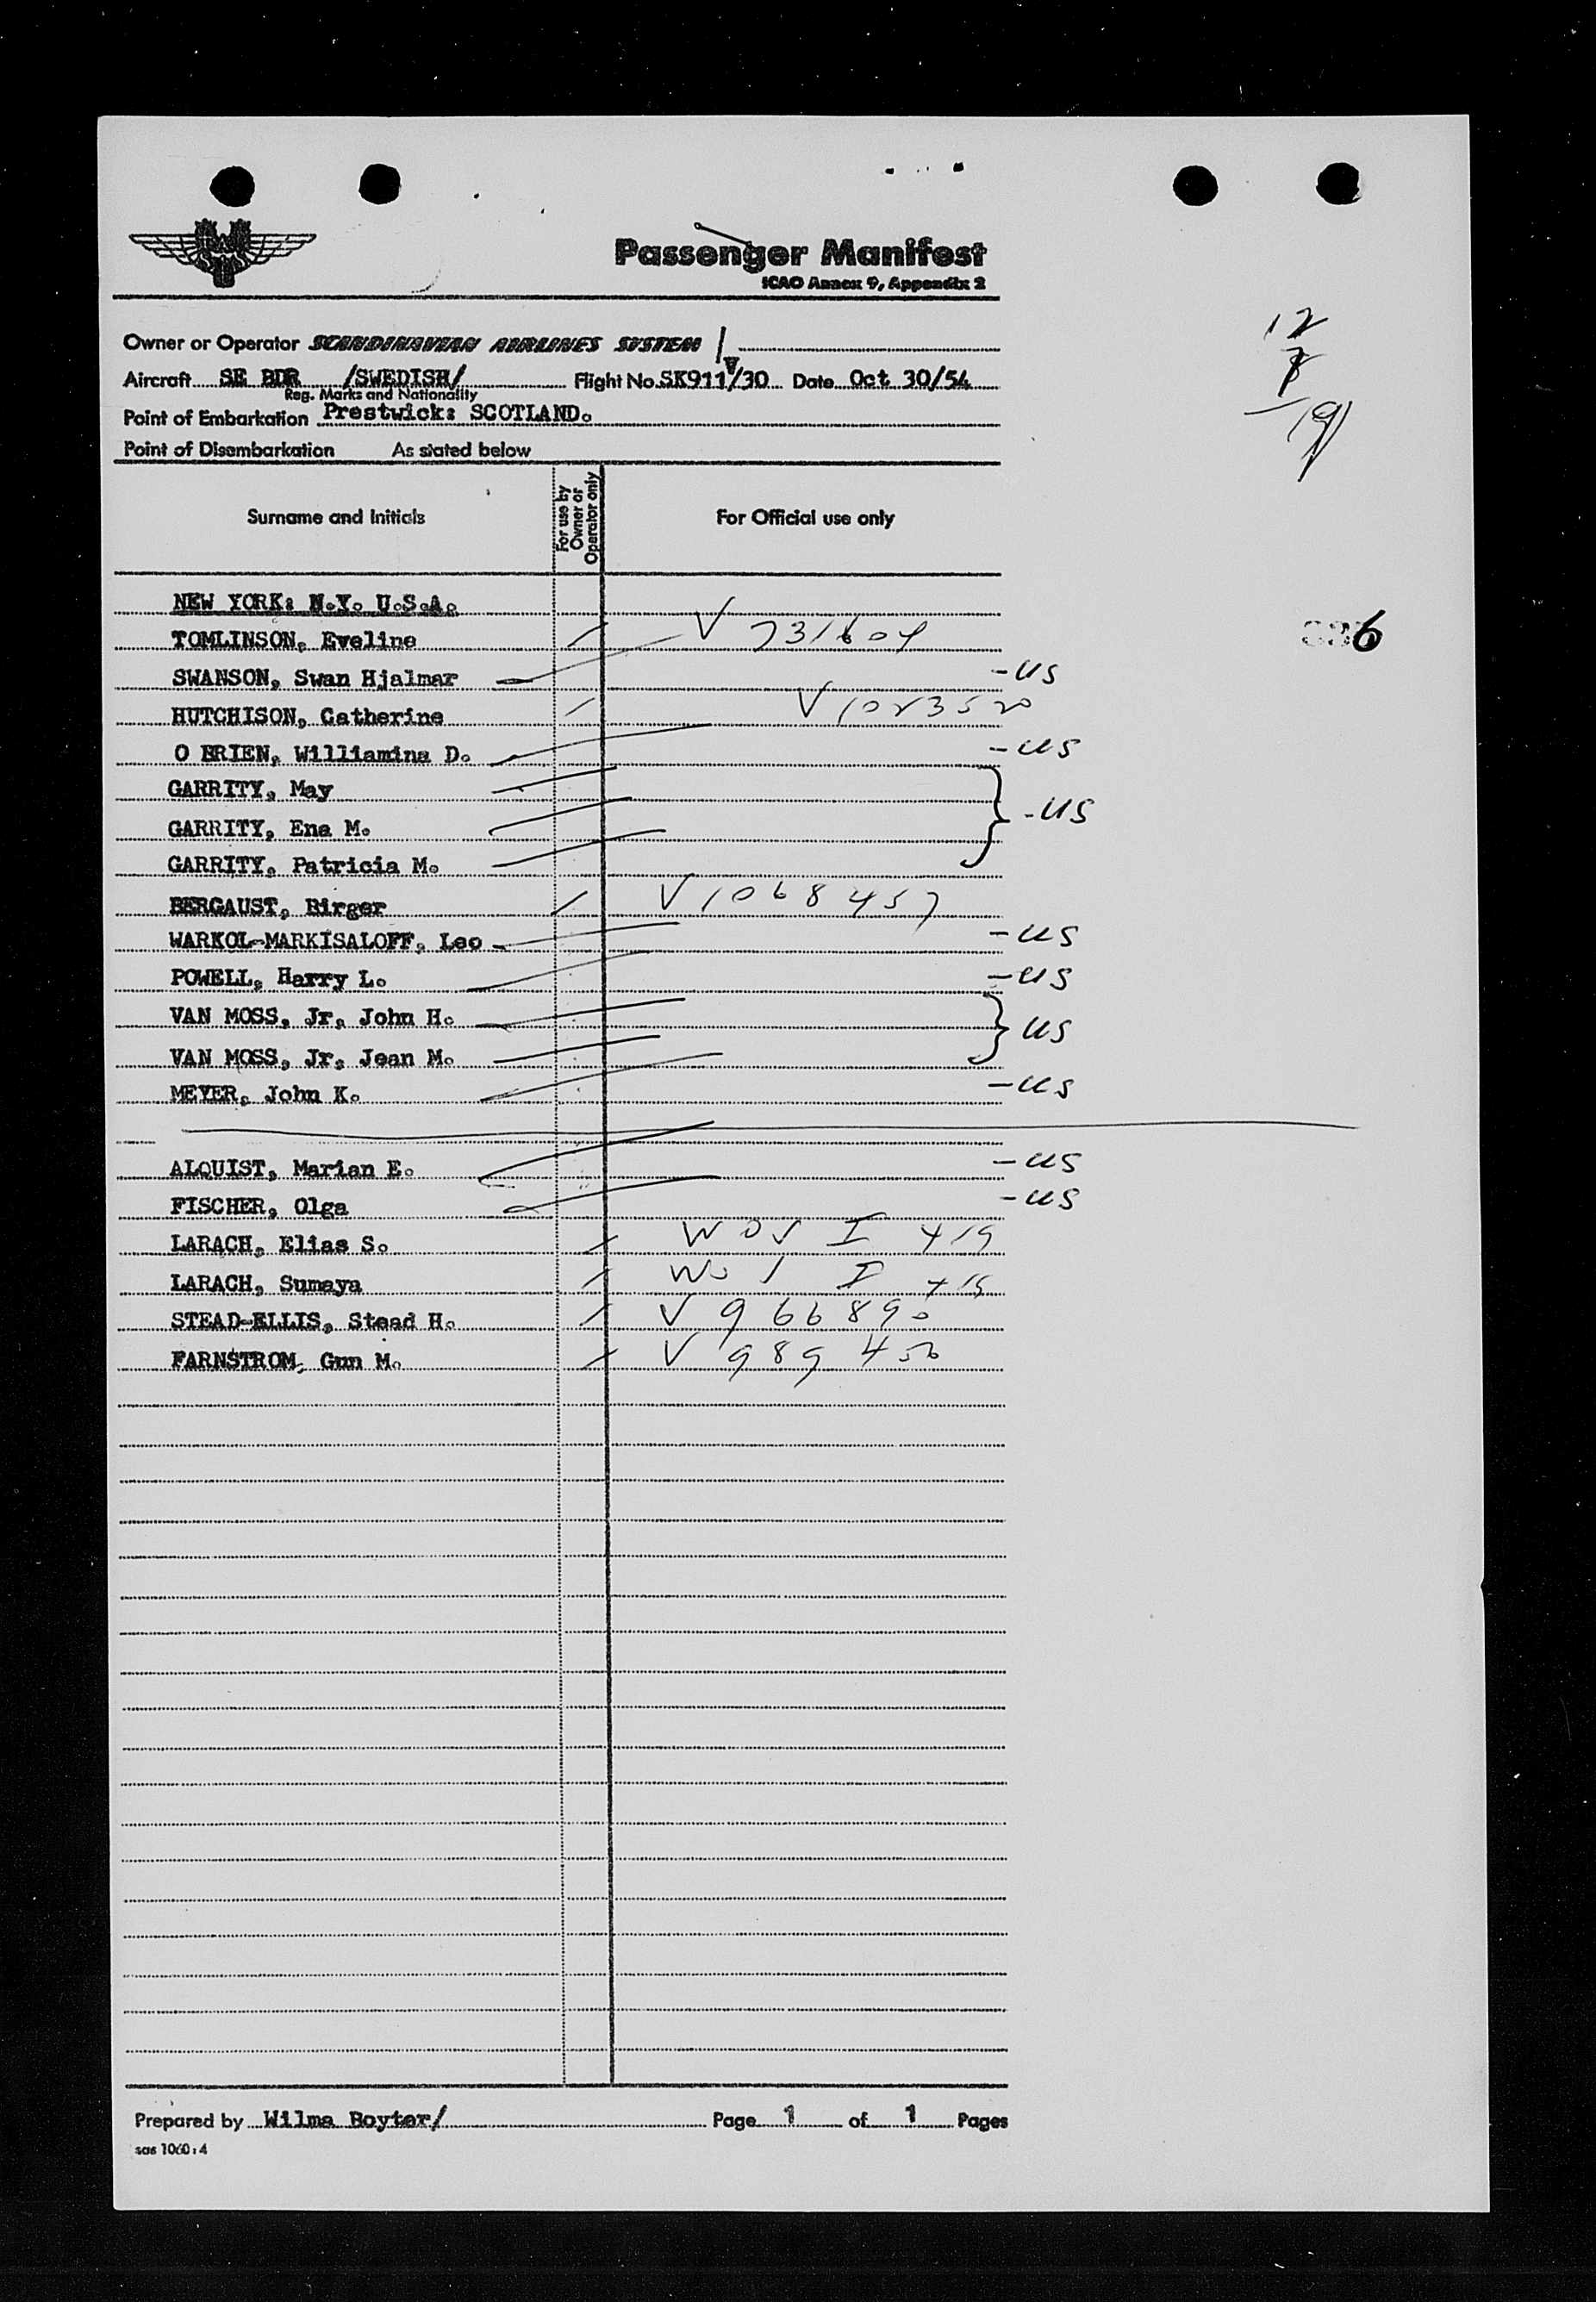 Passenger Manifest
ICAO Annex 9, Appendix 2
12
7
19
Owner or Operator SCANDINAVIAN AIRLINES SYSTEM
Aircraft SE BDR /SWEDISH/ Flight No. SK911/30 Date Oct 30/54
Reg. Marks and Nationality
Point of Embarkation Prestwick: SCOTLAND.
Point of Disembarkation As stated below
Surname and Initials
For use by Owner or Operator only
For Official use only
NEW YORK: N.Y. U.S.A.
TOMLINSON, Eveline V 731604
SWANSON, Swan Hjalmar - US
HUTCHISON, Catherine V 1023520
O BRIEN, Williamina D. - US
GARRITY, May
GARRITY, Ena M. - US
GARRITY, Patricia M.
BERGAUST, Birger V 1068457
WARKOL-MARKISALOFF, Leo - US
POWELL, Harry L. - US
VAN MOSS, Jr, John H. US
VAN MOSS, Jr, Jean M.
MEYER, John K. - US
ALQUIST, Marian E. - US
FISCHER, Olga - US
LARACH, Elias S. I 419
LARACH, Sumaya I 419
STEAD-ELLIS, Stead H. V 966890
FARNSTROM, Gun M. V 989450
Prepared by Wilma Boyter/ Page 1 of 1 Pages
sas 1060:4